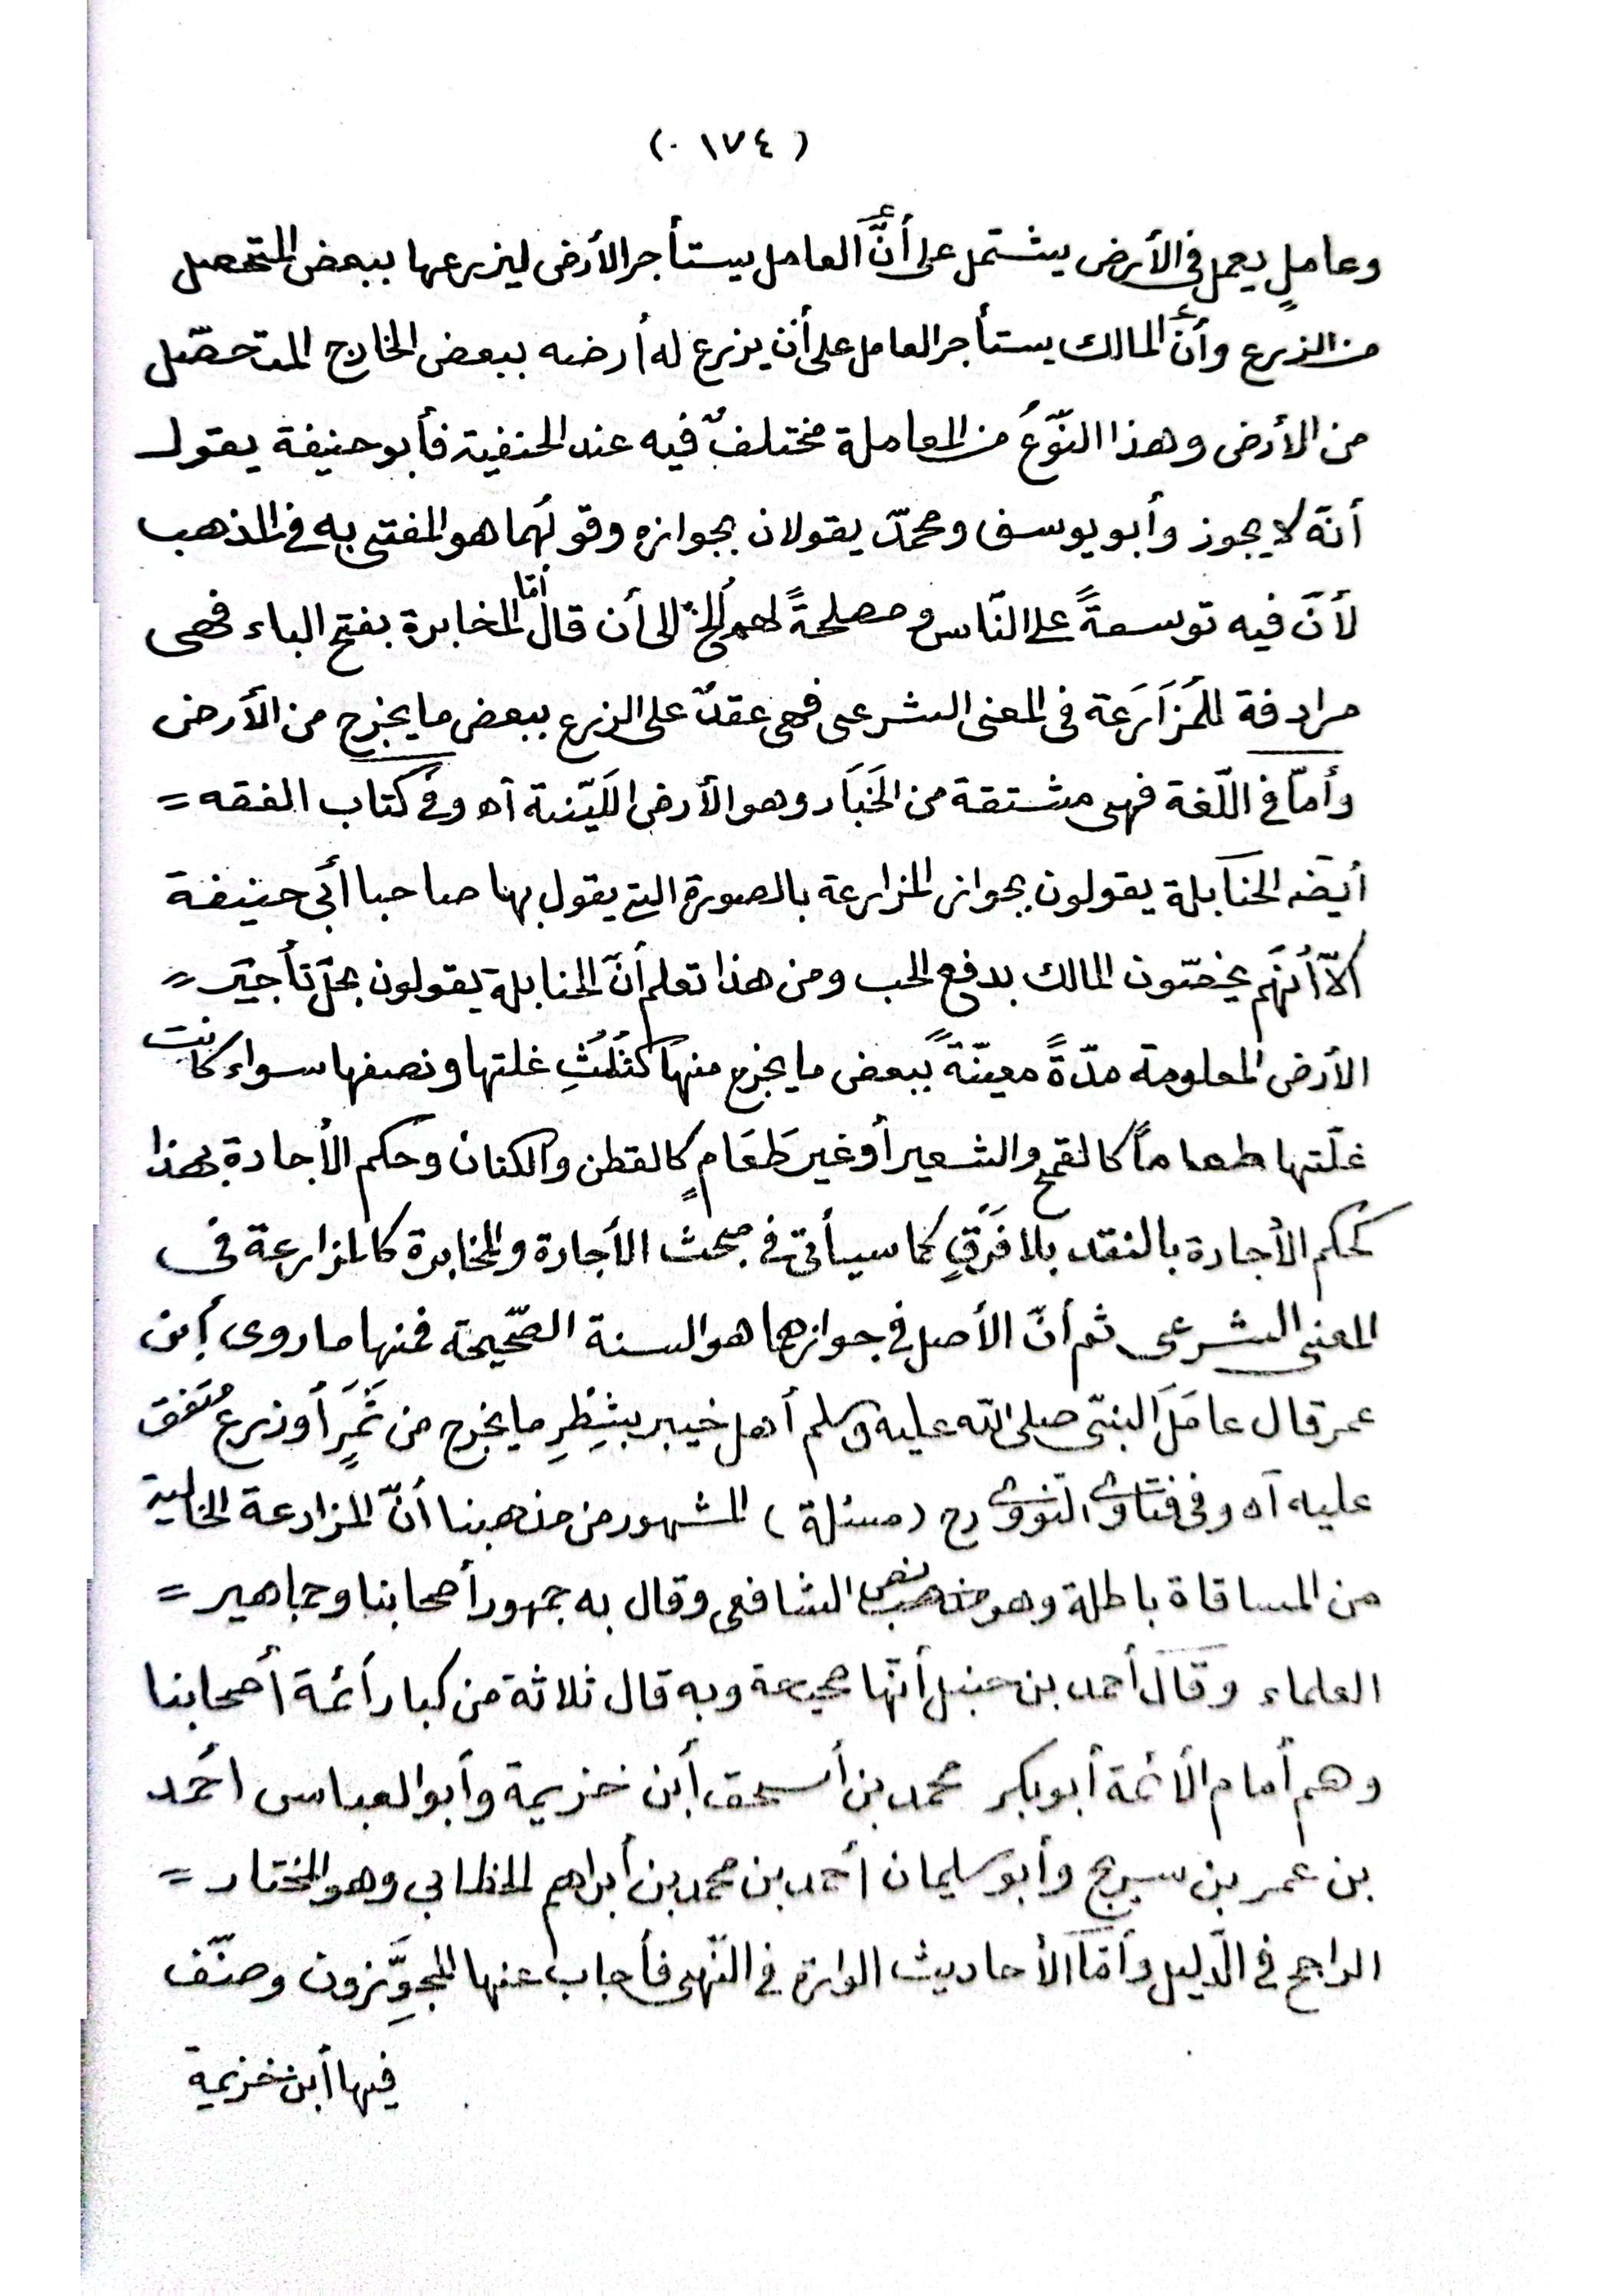 ( ١٧٤ ٠)
وعاملٍ يعمل فى الأرض يشتمل على أنَّ العامل يستأجر الأرض ليزرعها ببعض المتحصل
من الزرع وأنَّ المالك يستأجر العامل على أن يزرع له أرضه ببعض الخارج المتحصّل
من الأرض وهذا النّوعُ من المعاملة مختلفٌ فيه عند الحنفية فأبو حنيفة يقول
أنّه لا يجوز وأبو يوسف ومحمدّ يقولان بجوازه وقولُهما هو المفتى به فى المذهب
لأنّ فيه توسعةً على النّاس ومصلحةً لهم ألخ الى أن قال أمّا المخابرة بفتح الباء فهى
مرادفة للمُزَارَعة فى المعنى الشرعى فهى عقدٌ على الزرع ببعض ما يخرج من الأرض
وأمّا فى اللّغة فهى مشتقة من الخَبَار وهو الأرض اللَيّنة اه وفى كتاب الفقه =
أيضا الحنابلة يقولون بجواز المزارعة بالصورة التى يقول بها صاحبا أبى حنيفة
الاّ أنّهم يخصّون المالك بدفع الحب ومن هذا تعلم أنّ الحنابلة يقولون بحلّ تأجير =
الأرض المعلومة مدّةً معينّةً ببعض ما يخرج منها كثُلُثِ غلتها ونصفها سواء كانت
غلّتها طعاماً كالقمح والشعير أو غير طَعَامٍ كالقطن والكتان وحكم الأجارة بهذا
كحكم الأجارة بالنقد بلا فَرَقٍ كما سيأتى فى مبحث الأجارة والمخابرة كالمزارعة فى
المعنى الشرعى ثم أنّ الأصل فى جوازهما هو السنة الصّحيحة فمنها ما روى أبن
عمر قال عامَلَ النبىّ صلى الله عليه وسلم أهل خيبر بشِطْرِ ما يخرج من ثَمَرٍ أو زرع مُتفق
عليه اه وفى فتاوى النووى رح (مسئلة) المشهور من مذهبنا أنّ المزارعة الخالية
من المساقاة باطلة وهو نص الشافعى وقال به جمهور أصحابنا وجماهير =
العلماء وقَالَ أحمد بن حنبل أنّها صحيحة وبه قال ثلاثة من كبار أئمة أصحابنا
وهم أمام الأئمة أبوبكر محمد بن أسحق أبن خزيمة وأبو العباس أحمد
بن عمر بن سريج وأبو سليمان أحمد بن محمد بن أبراهيم الخطابى وهو المختار =
الراجح فى الدّليل وأمّا الأحاديث الواردة فى النّهى فأجاب عنها المجوِّزون وصنّف
فيها أبن خزيمة